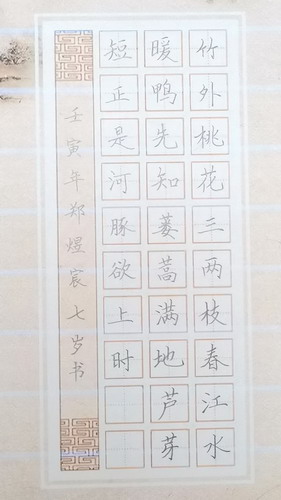 竹外桃花三两枝春江水
暖鸭先知蒌蒿满地芦芽
短正是河豚欲上时
壬寅年郑煜宸七岁书